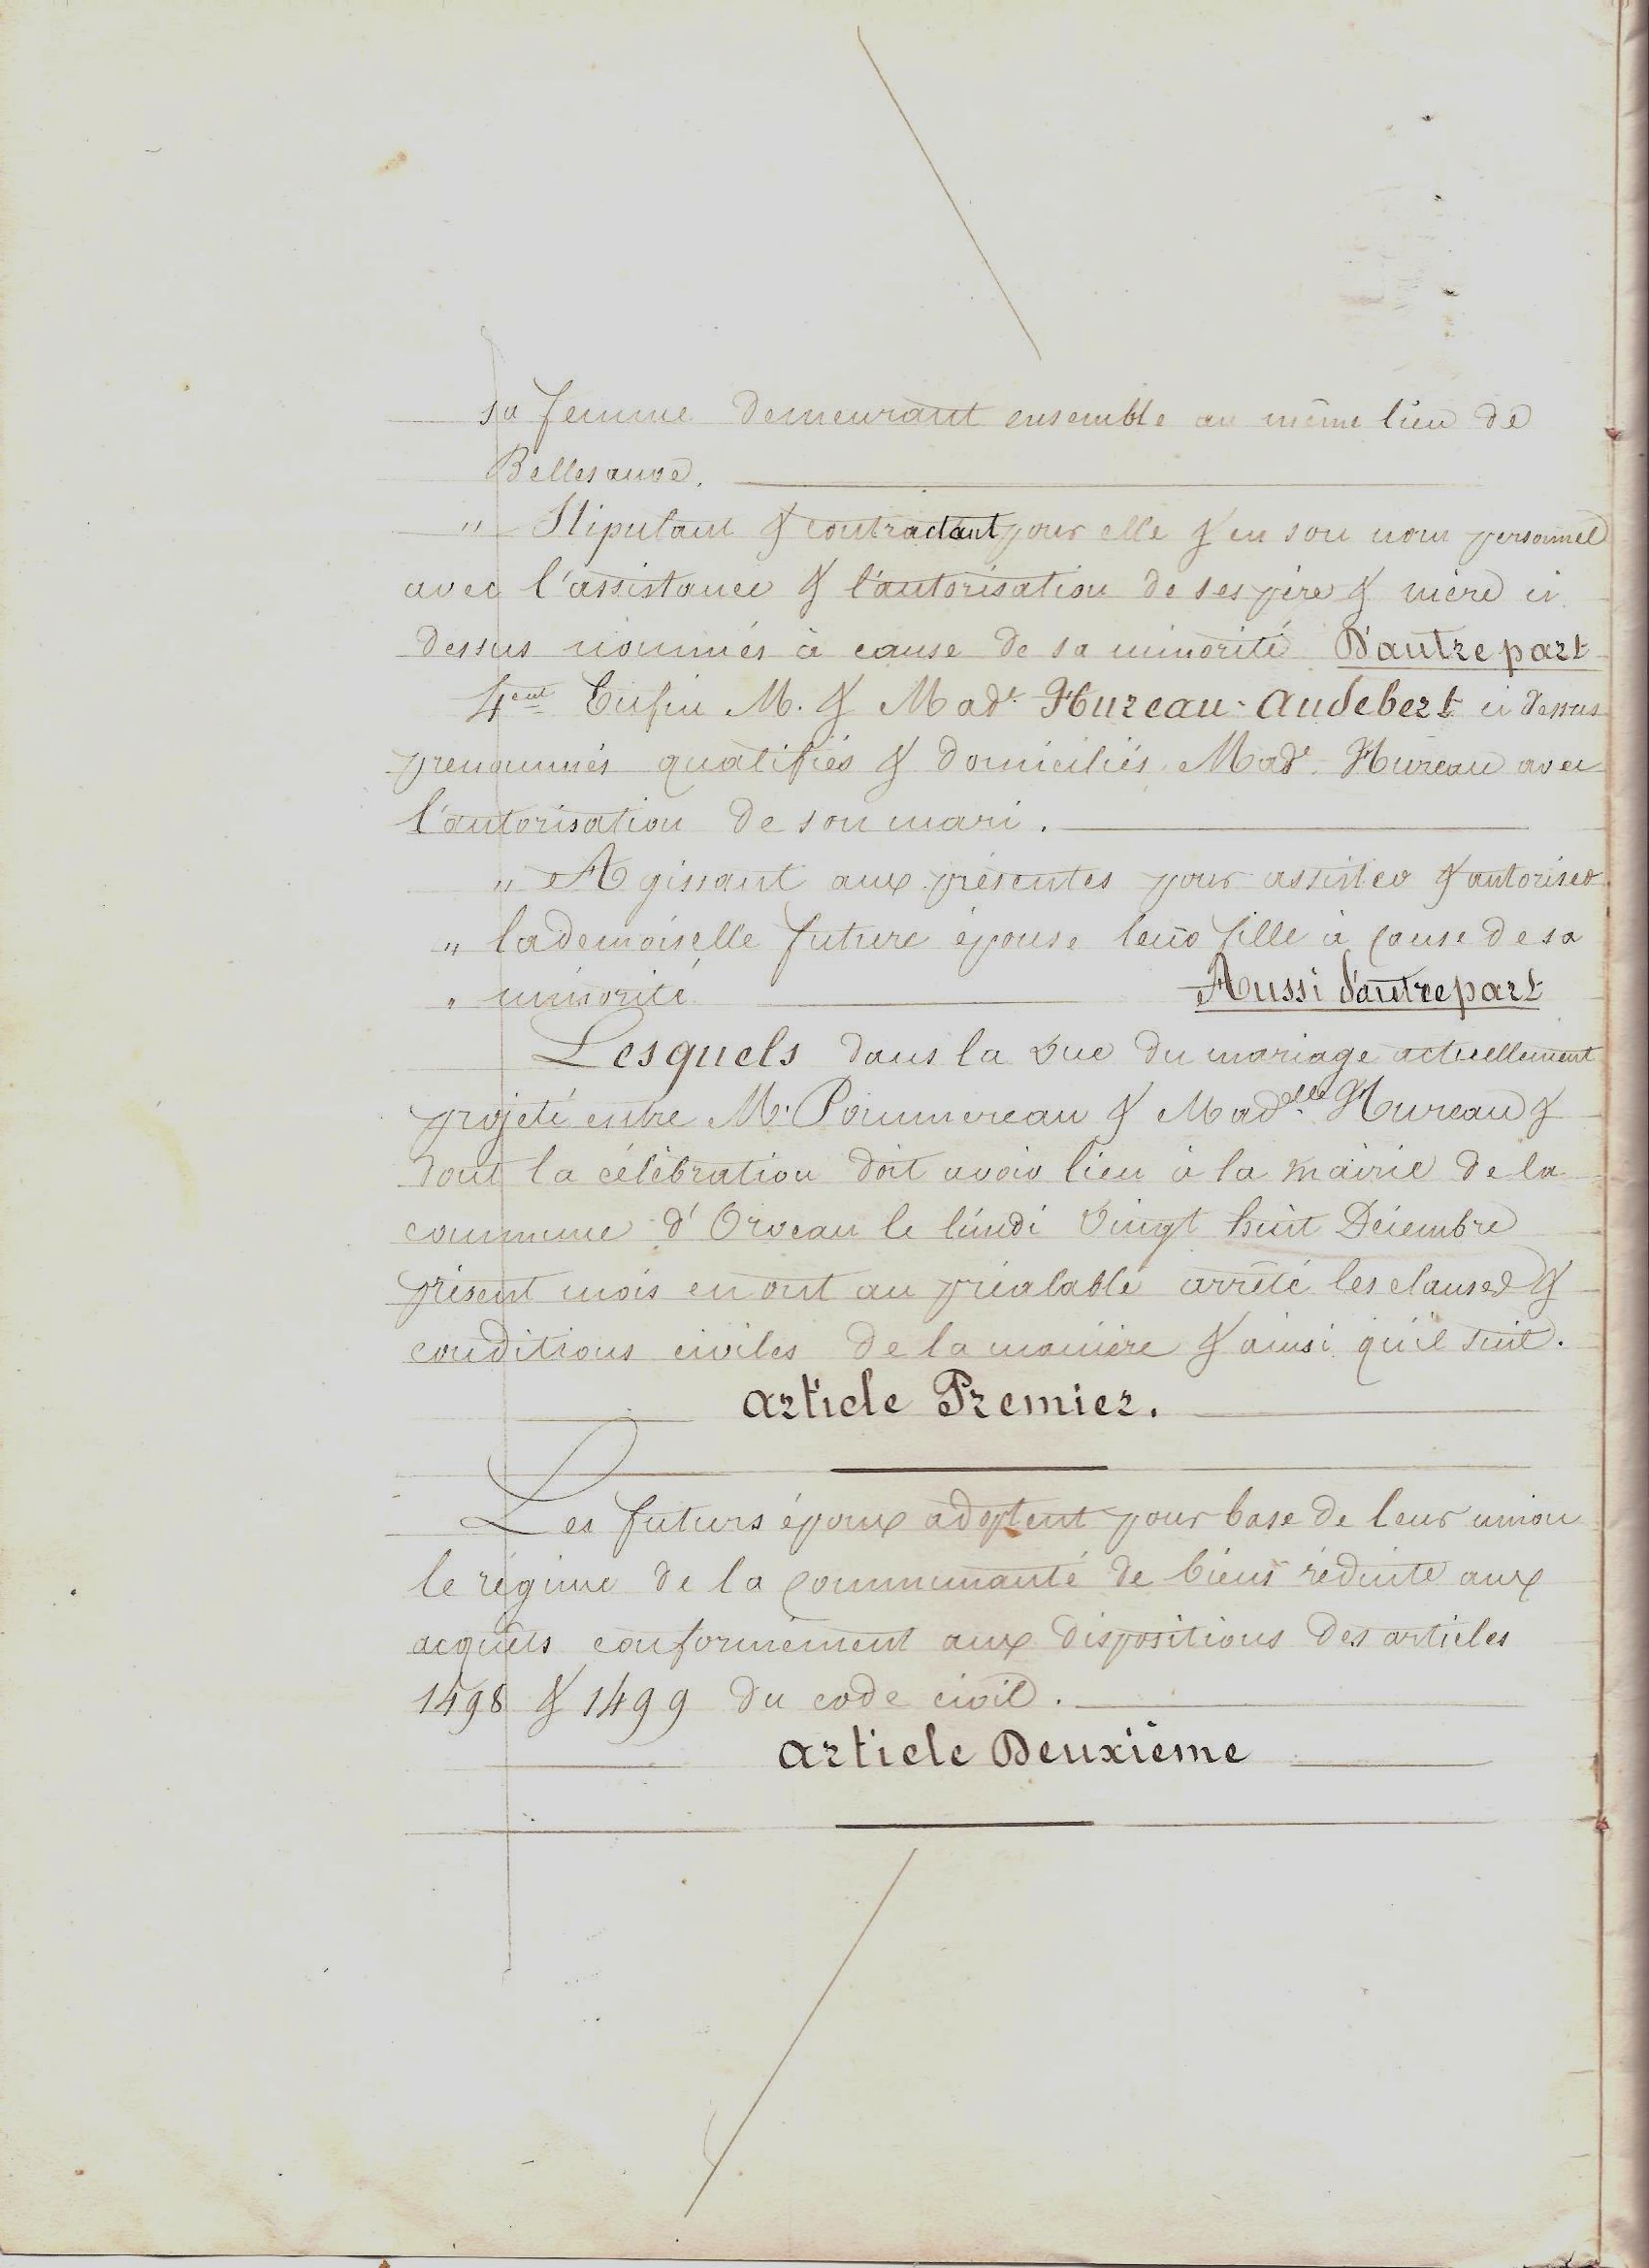 sa femme demeurant ensemble au même lieu de
Bellesauve.
" Stipulant & contractant pour elle & en son nom personnel
avec l'assistance & l'autorisation de ses père & mère ci
dessus nommés à cause de sa minorité D'autre part
4ent Enfin M. & Made Hureau-Audebert ci dessus
prenommés qualifiés & domiciliés, Made Hureau avec
l'autorisation de son mari.
" Agissant aux présentes pour assister & autoriser
" la demoiselle future épouse leur fille à cause de sa
" minorité Aussi d'autre part
Lesquels dans la vue du mariage actuellement
projeté entre Mr Pommereau & Madelle Hureau &
dont la célébration doit avoir lieu à la mairie de la
commune d'Orveau le lundi vingt huit Décembre
présent mois en ont au préalable arrêté les clauses &
conditions civiles de la manière & ainsi qu'il suit.
Article Premier.
Les futurs époux adoptent pour base de leur union
le régime de la communauté de biens réduite aux
acquêts conformément aux dispositions des articles
1498 & 1499 du code civil.
Article Deuxième